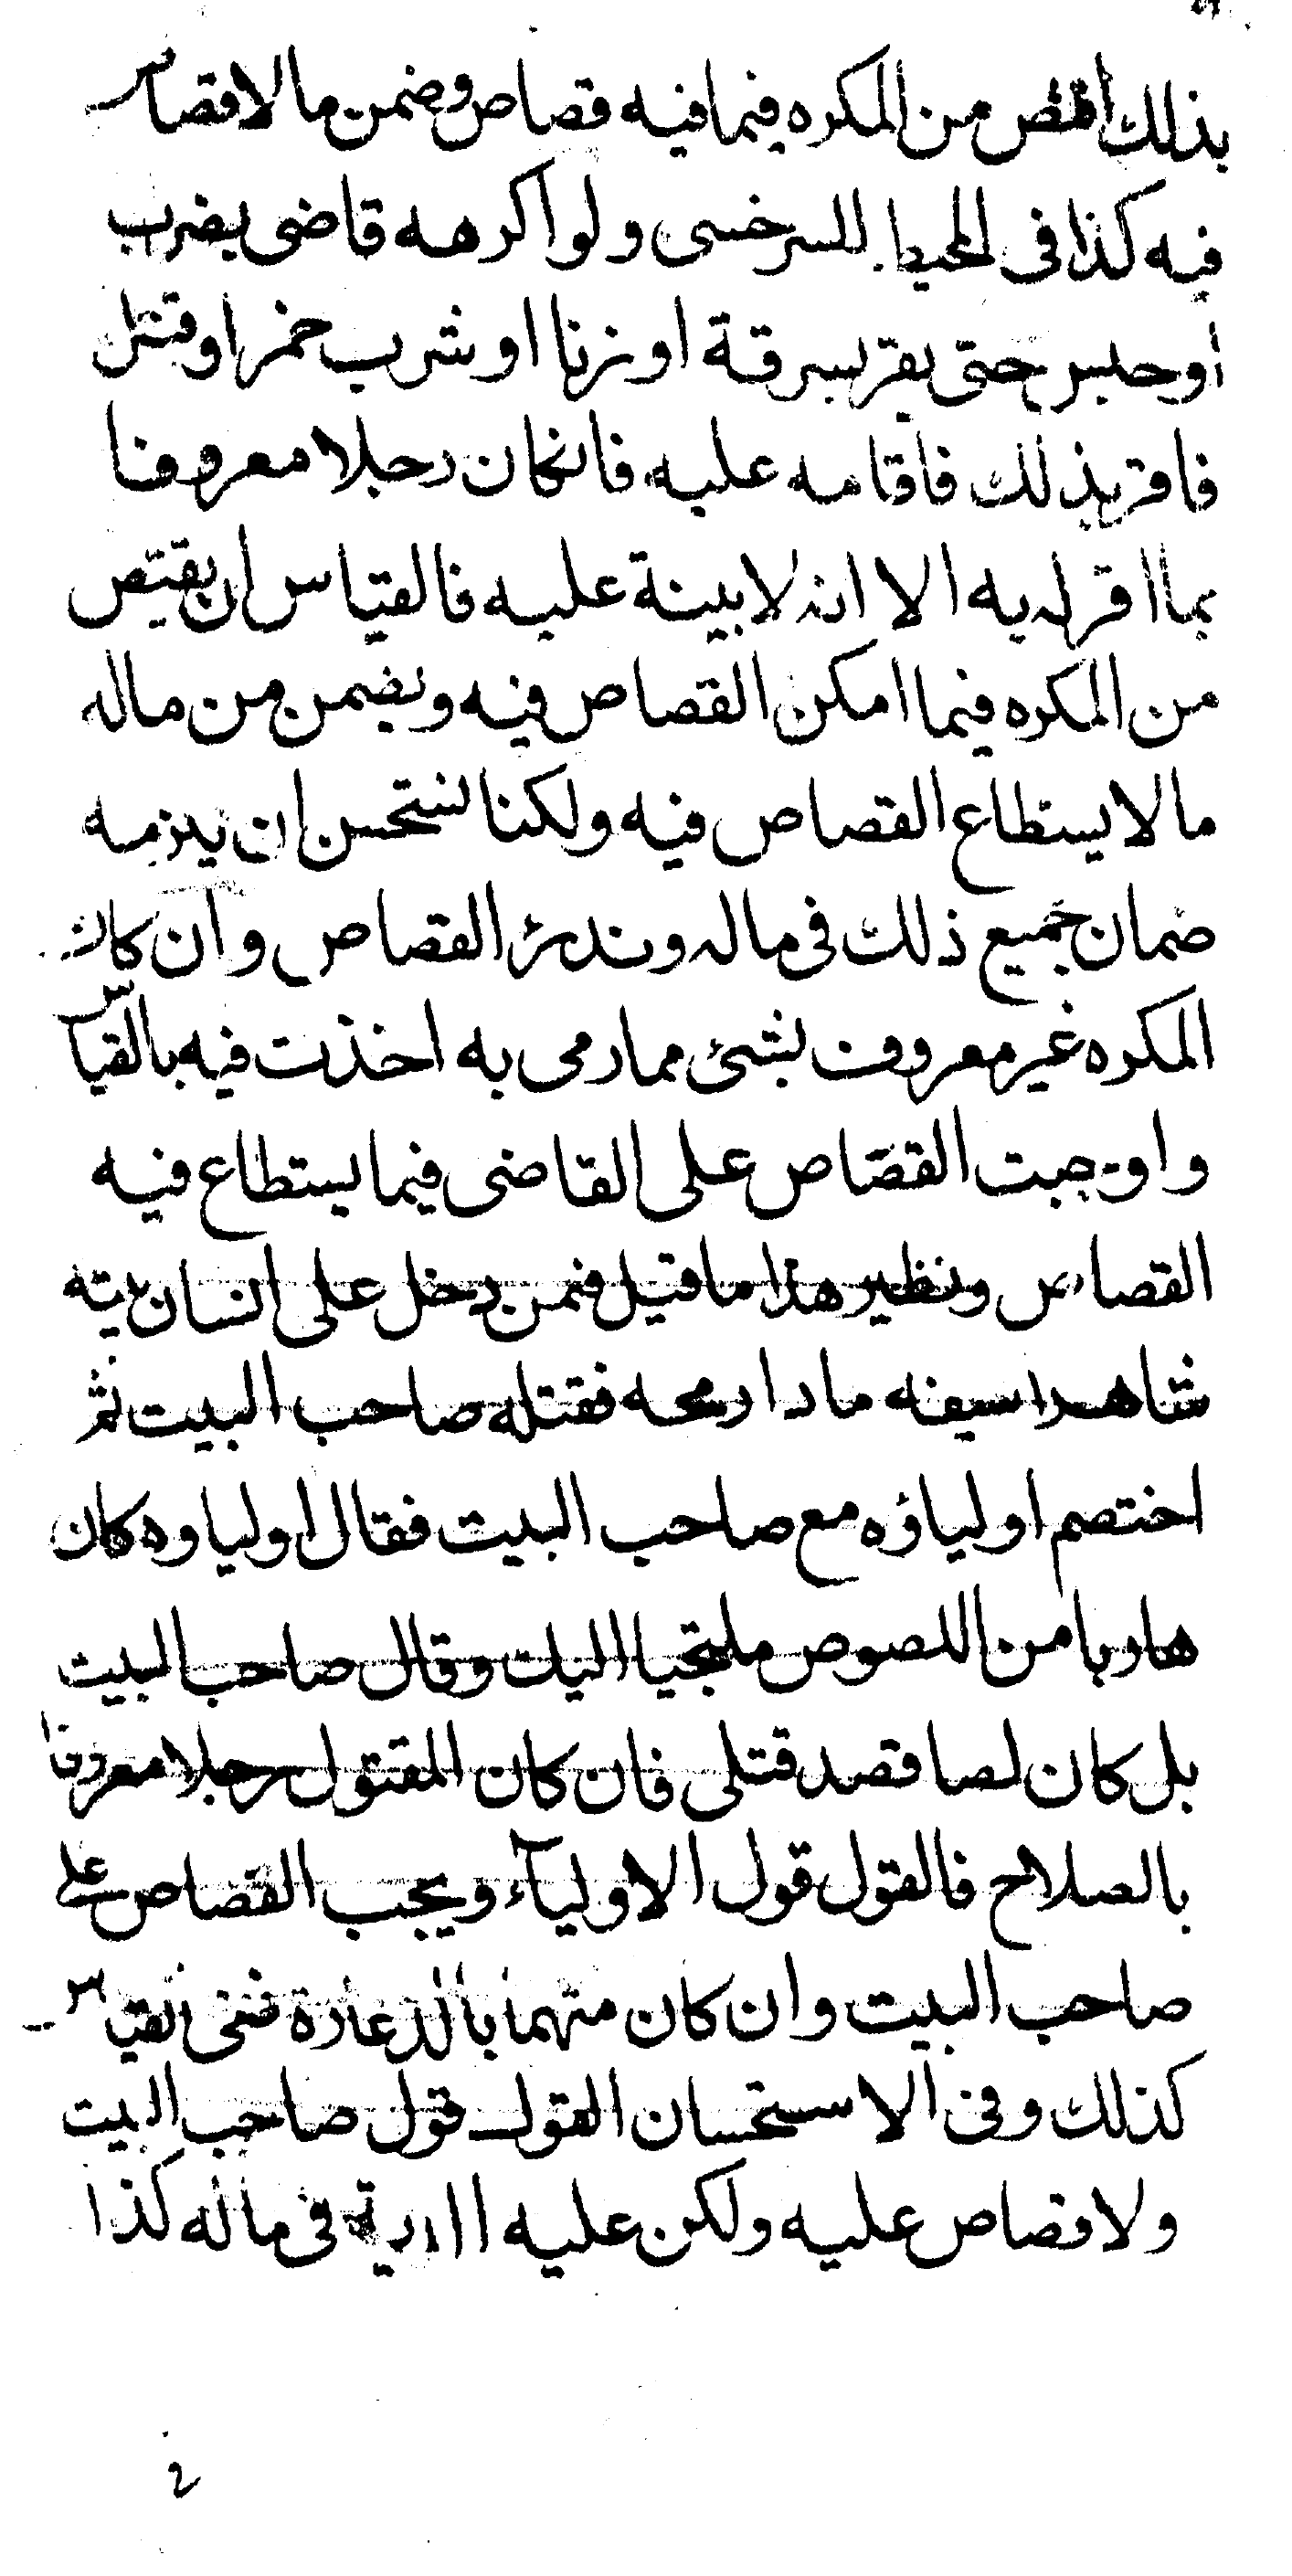 بذلك اقتص من المكره فيما فيه قصاص وضمن ما لا قصاص
فيه كذا في المحيط للسرخسى ولو اكرهه قاضى بضرب
أو حبس حتى يقر بسرقة او زنا او شرب خمر او قتل
فاقر بذلك فاقامه عليه فانكان رجلا معروفا
بما اقر له به الا انه لا بينة عليه فالقياس ان يقتص
من المكره فيما امكن القصاص فيه ويضمن من ماله
ما لا يستطاع القصاص فيه ولكنا نستحسن ان يلزمه
ضمان جميع ذلك فى ماله وندرئ القصاص وان كان
المكره غير معروف بشئ مما رمى به اخذت فيه بالقياس
واوجبت القصاص على القاضى فيما يستطاع فيه
القصاص ونظير هذا ما قيل فمن دخل على انسان بيته
شاهرا سيفه مادا رمحه فقتله صاحب البيت ثم
اختصم اولياؤه مع صاحب البيت فقال اولياوه كان
هاربا من اللصوص ملتجيا اليك وقال صاحب البيت
بل كان لصا قصد قتلى فان كان المقتول رجلا معروفا
بالصلاح فالقول قول الاولياء ويجب القصاص على
صاحب البيت وان كان متهما بالدعارة ففى القياس
كذلك وفى الاستحسان القول قول صاحب البيت
ولا قصاص عليه ولكن عليه الدية فى ماله كذا